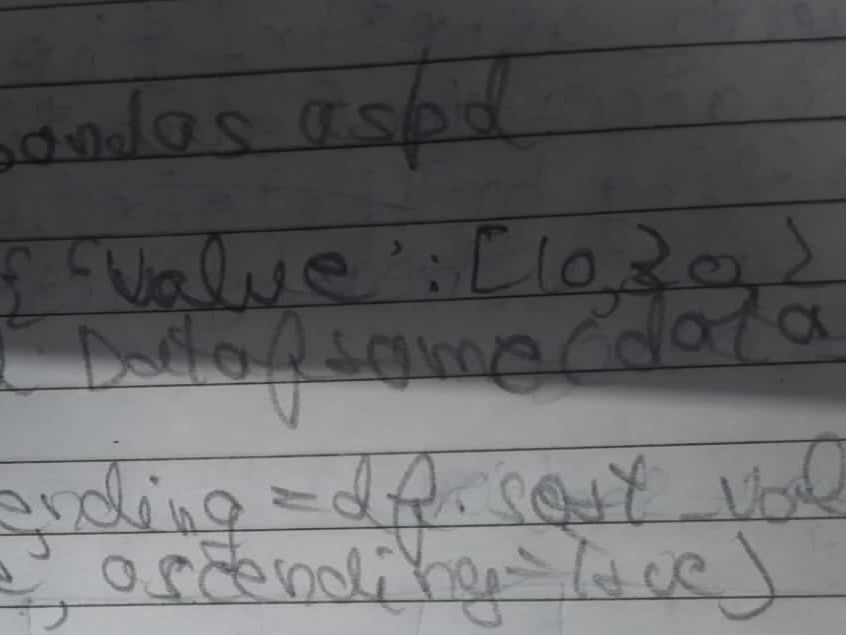 pandas as pd
{ 'Value': [10,30
DataFrame(data
ending = df.sort_val
, ascending=True)